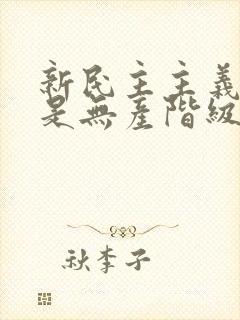 新民主主義
是無產階級
秋李子